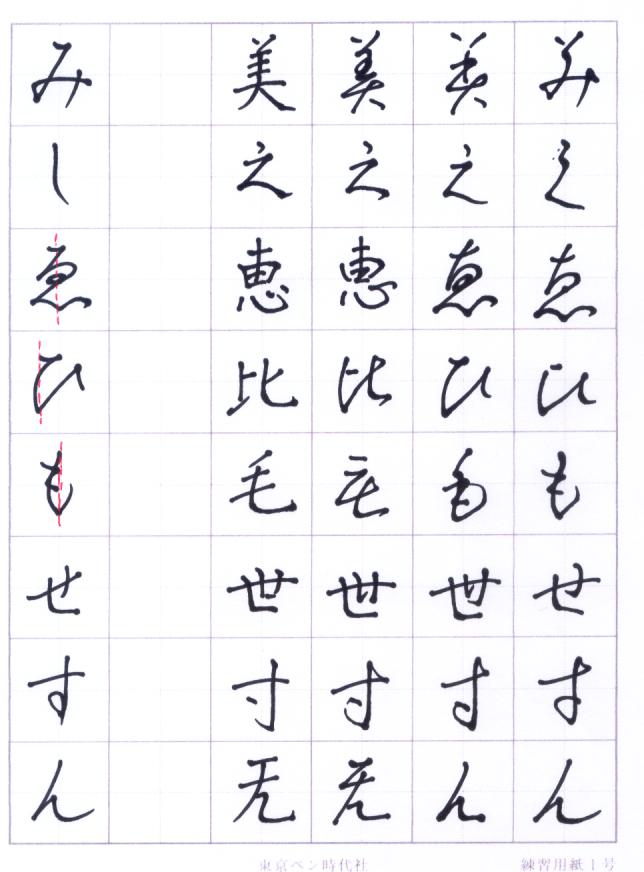 美之恵比毛世寸无
美之恵比毛世寸无
美之恵比毛世寸无
美之恵比毛世寸无
みしゑひもせすん
東京ペン時代社
練習用紙1号